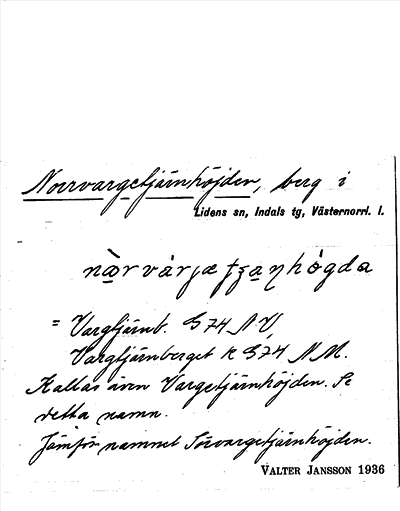 Norrvargetjärnhöjden, berg i
Lidens sn, Indals tg, Västernorrl. l.
= Vargtjärnb. G74 NV,
Vargtjärnberget K G74 NM.
Kallas även Vargetjärnhöjden. Se
detta namn.
Jämför namnet Sörvargetjärnhöjden.
VALTER JANSSON 1936